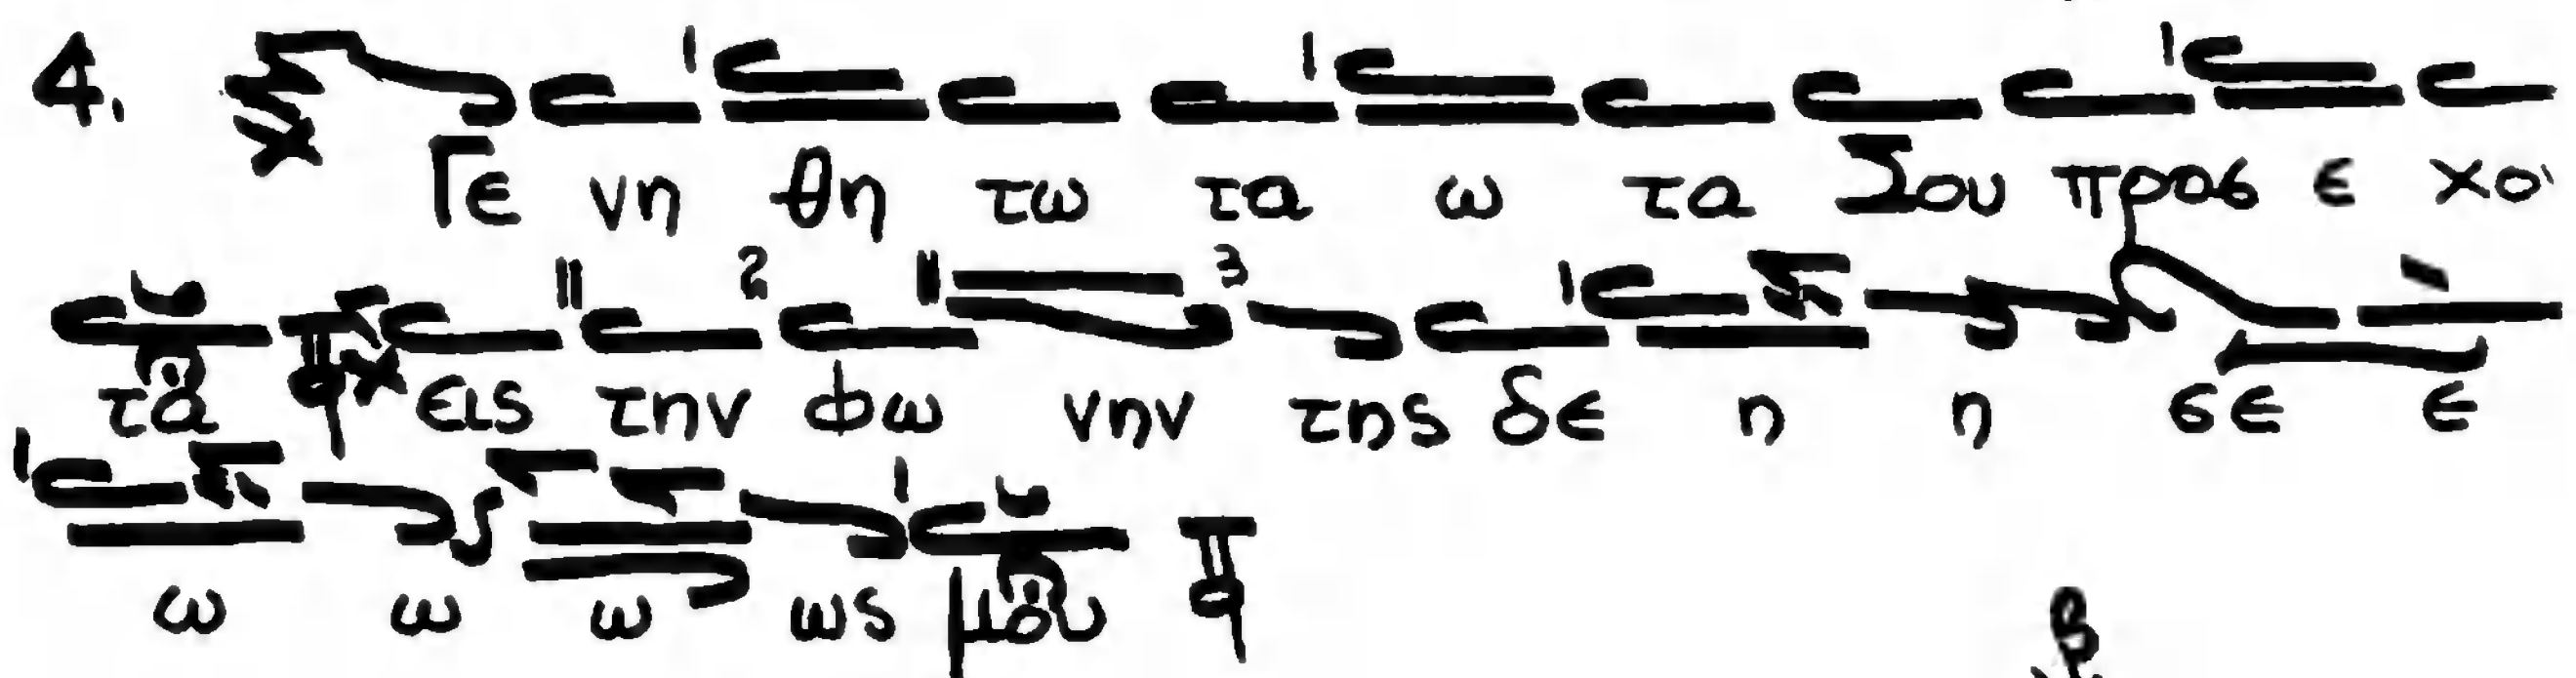 4. Γε νη θη τω τα ω τα Σου προς ε χο
τα εις την φω νην της δε η η σε ε
ω ω ω ως μου